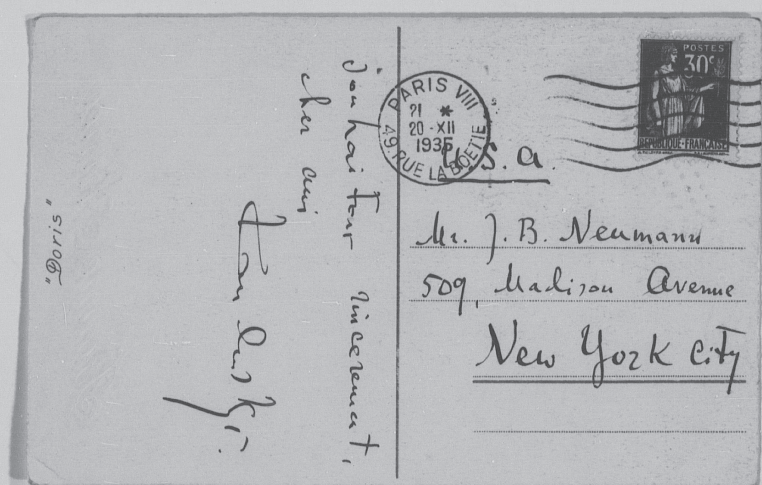 souhaiteur sincerement,
cher ami
"Doris"
PARIS VIII
21 *
20 - XII
1935
49. RUE LA BOETIE
POSTES
30c
REPUBLIQUE-FRANÇAISE
U.S.a.
Mr. J. B. Neumann
509, Madison Avenue
New York City